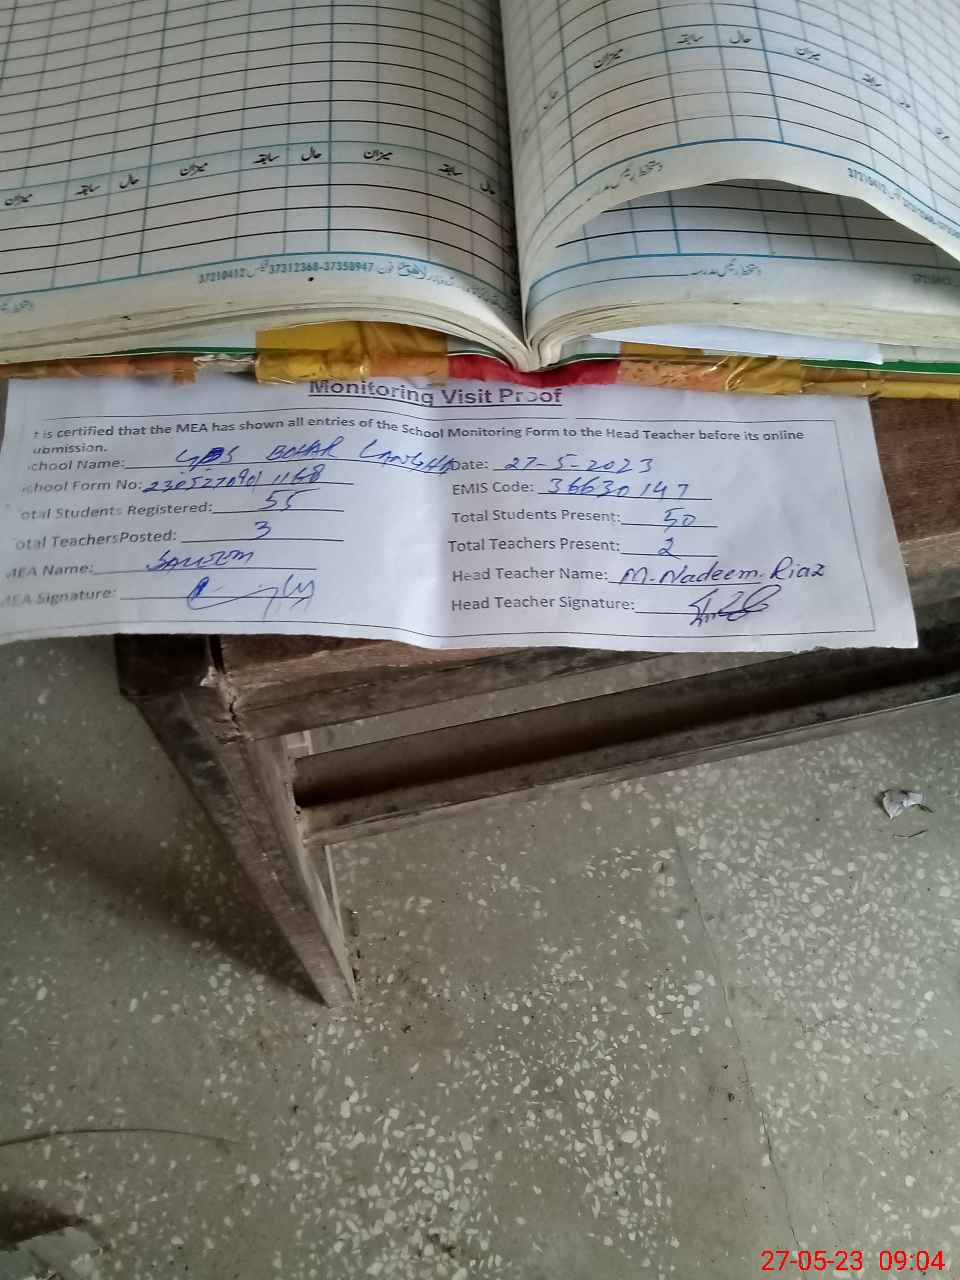 میزان سابقہ حال میزان سابقہ حال
میزان سابقہ حال میزان سابقہ حال میزان سابقہ حال
دستخط رئیس مدرسہ
37210412
فون: 37312368-37358947 فیکس 37210412
دستخط رئیس مدرسہ
Monitoring Visit Proof
t is certified that the MEA has shown all entries of the School Monitoring Form to the Head Teacher before its online
ubmission.
chool Name: GPS BOHAR LANGHA Date: 27-5-2023
chool Form No: EMIS Code: 36630147
otal Students Registered: 55 Total Students Present: 50
otal TeachersPosted: 3 Total Teachers Present: 2
MEA Name: Head Teacher Name: M. Nadeem. Riaz
MEA Signature: Head Teacher Signature:
27-05-23 09:04